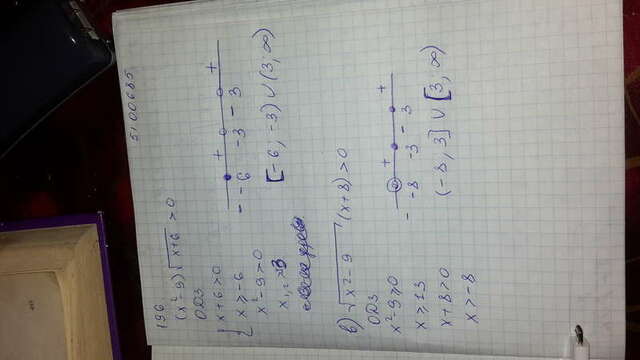 5100685
196
(x² - 9)√x+6 > 0
ОДЗ
{ x+6 > 0
x ≥ -6
x² - 9 > 0
x₁,₂ > 3
- + - +
-6 -3 3
[-6; -3) ∪ (3; ∞)
в) √x² - 9 (x+8) > 0
ОДЗ
x² - 9 ≥ 0
x ≥ ±3
x+8 > 0
x > -8
- + - +
-8 -3 3
(-8, 3] ∪ [3; ∞)